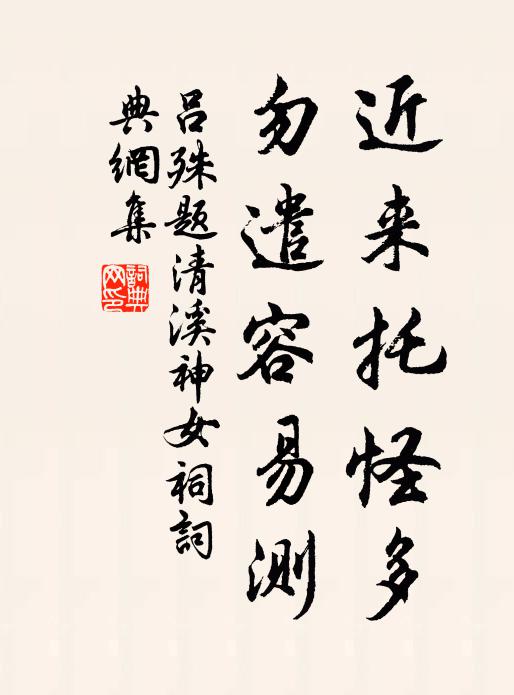 近来托怪多
勿遣容易測
吕殊题清溪神女祠詞
典網集
詞典
网印